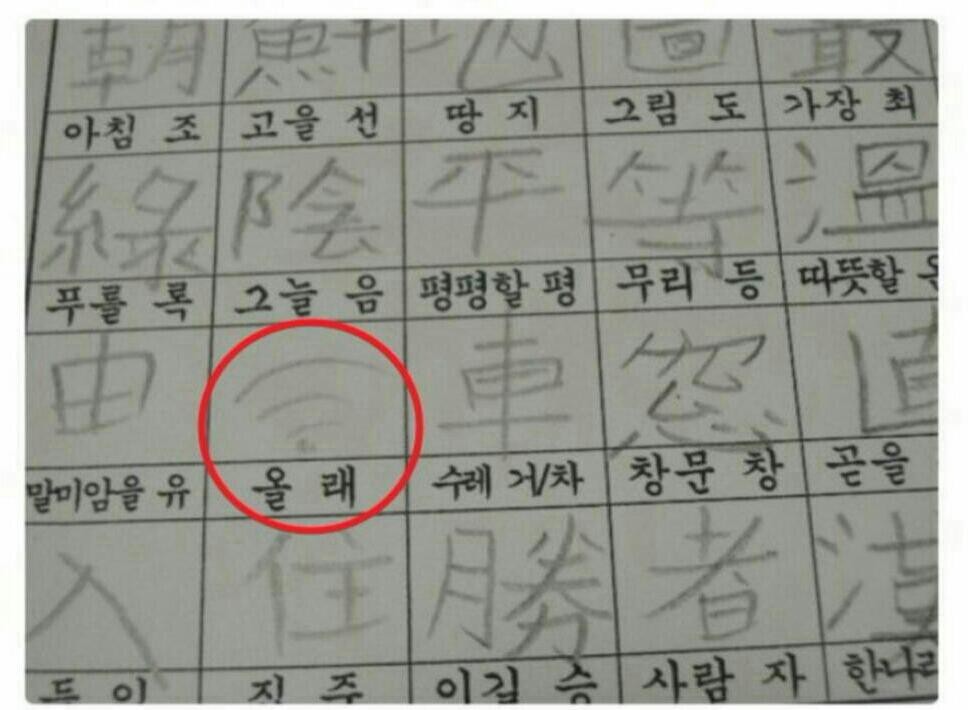 朝 鮮 地 圖 最
아침 조 고을 선 땅 지 그림 도 가장 최
綠 陰 平 等 溫
푸를 록 그늘 음 평평할 평 무리 등 따뜻할 온
由 車 窓 直
말미암을 유 올 래 수레 거/차 창문 창 곧을
入 住 勝 者
이길 승 사람 자 한나라